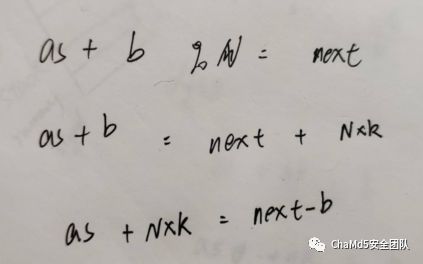 as + b % N = next
as + b = next + N×k
as + N×k = next-b
ChaMd5安全团队